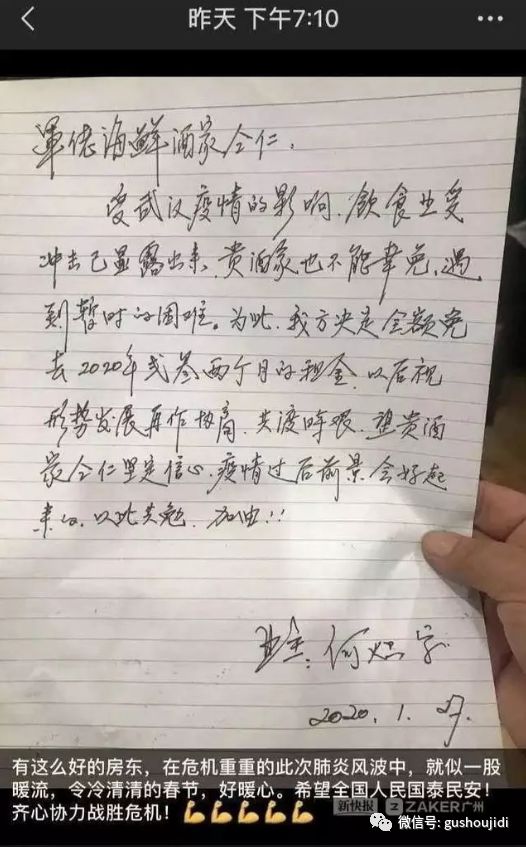 昨天 下午7:10
军佬海鲜酒家仝仁,
受武汉疫情的影响,饮食业受
冲击已显露出来,贵酒家也不能幸免,遇
到暂时的困难。为此,我方决定全额免
去2020年贰叁两个月的租金,以后视
形势发展再作协商,共渡时艰,望贵酒
家仝仁坚定信心,疫情过后前景会好起
来的,以此共勉,加油!!
业主:何
2020.1.27.
有这么好的房东，在危机重重的此次肺炎风波中，就似一股
暖流，令冷清清的春节，好暖心。希望全国人民国泰民安！
齐心协力战胜危机！💪💪💪💪💪
新快报 ZAKER广州
微信号: gushoujidi